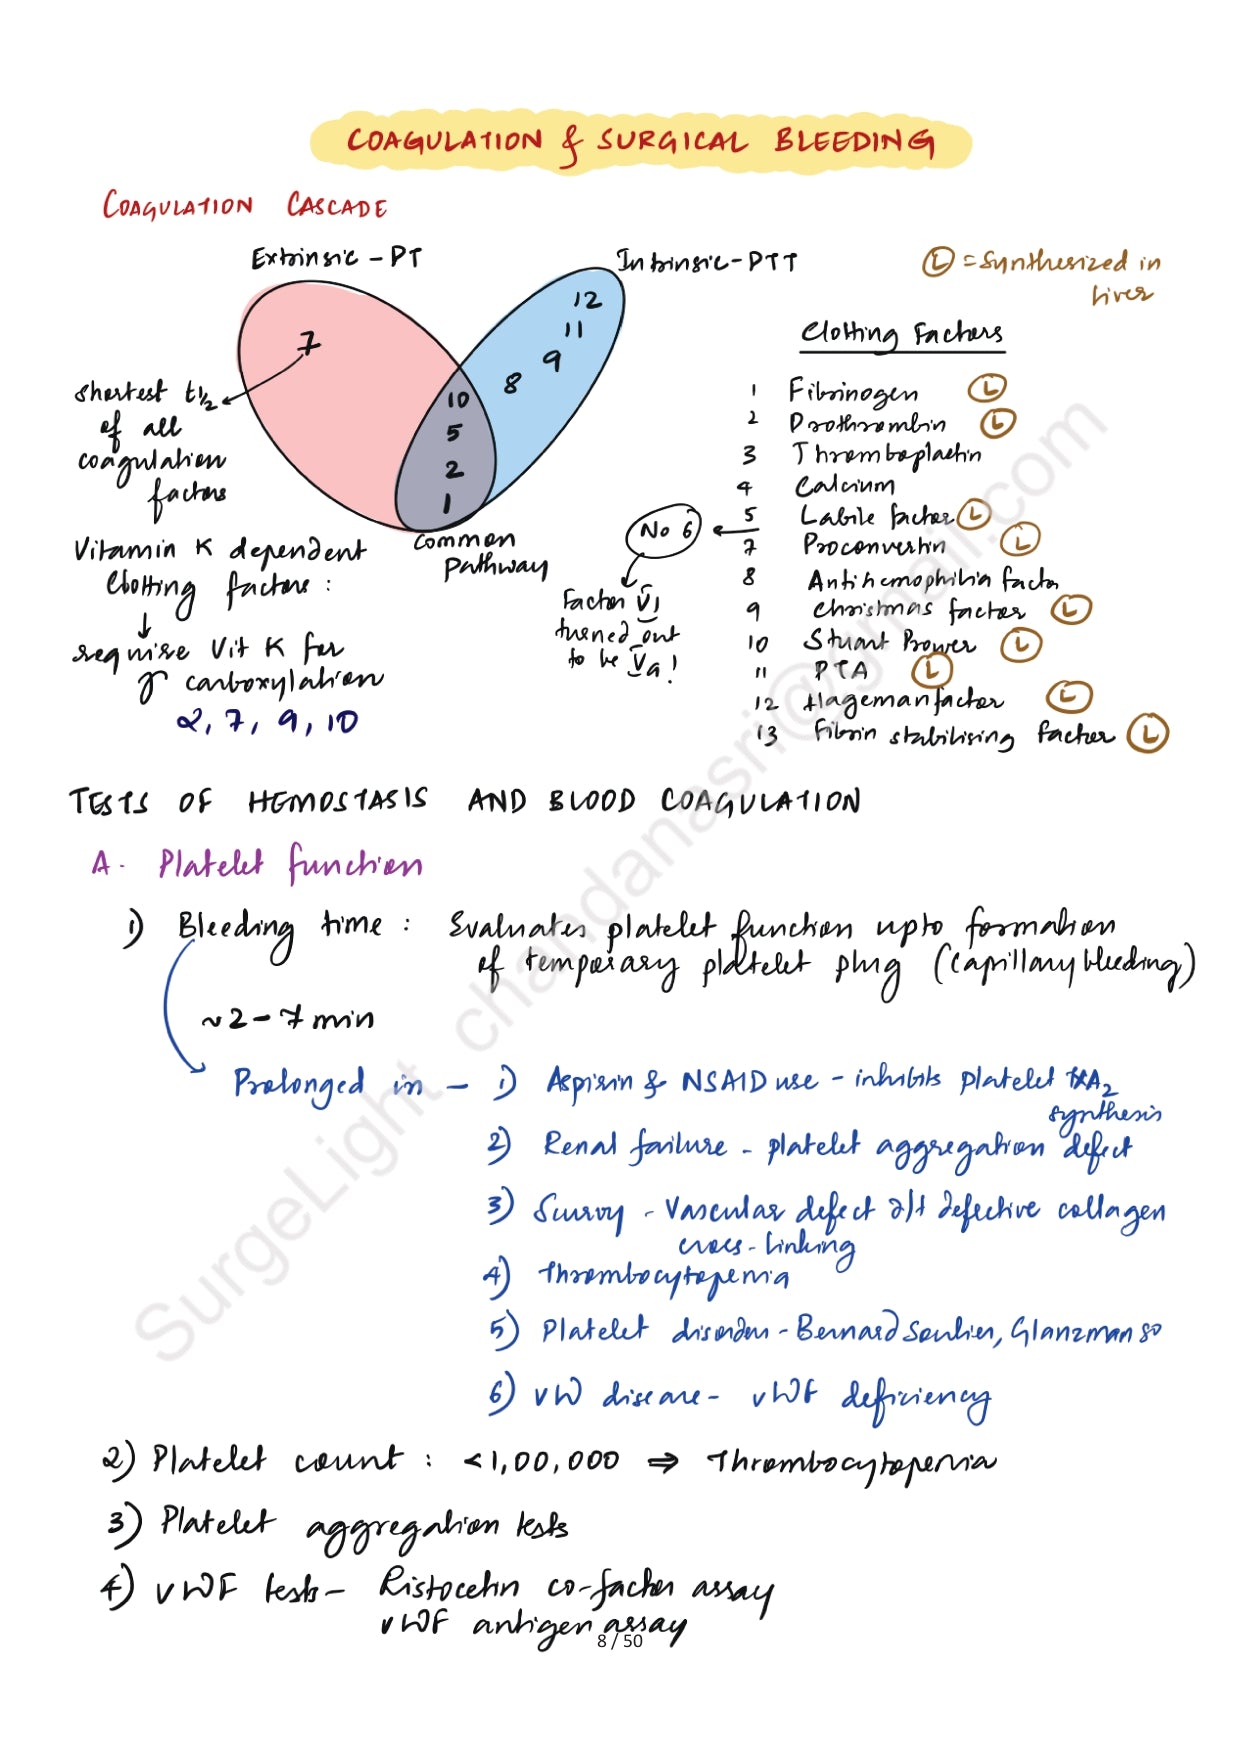 COAGULATION & SURGICAL BLEEDING
COAGULATION CASCADE
Extrinsic - PT
Intrinsic - PTT
Ⓛ = Synthesized in
liver
7
12
11
9
8
10
5
2
1
Common
Pathway
shortest t½
of all
coagulation
factors
Vitamin K dependent
Clotting factors :
↓
require Vit K for
γ carboxylation
2, 7, 9, 10
Clotting Factors
1 Fibrinogen Ⓛ
2 Prothrombin Ⓛ
3 Thromboplastin
4 Calcium
5 Labile factor Ⓛ
7 Proconvertin Ⓛ
8 Antihemophilia factor
9 Christmas factor Ⓛ
10 Stuart Prower Ⓛ
11 PTA Ⓛ
12 Hageman factor Ⓛ
13 Fibrin stabilising factor Ⓛ
No 6
Factor VI
turned out
to be Va!
TESTS OF HEMOSTASIS AND BLOOD COAGULATION
A. Platelet function
1) Bleeding time : Evaluates platelet function upto formation
of temporary platelet plug (capillary bleeding)
~ 2 - 7 min
Prolonged in - 1) Aspirin & NSAID use - inhibits platelet TXA2
synthesis
2) Renal failure - platelet aggregation defect
3) Scurvy - Vascular defect d/t defective collagen
cross-linking
4) Thrombocytopenia
5) Platelet disorders - Bernard Soulier, Glanzmans
6) vW disease - vWF deficiency
2) Platelet count : <1,00,000 ⇒ Thrombocytopenia
3) Platelet aggregation tests
4) vWF tests - Ristocetin co-factor assay
vWF antigen assay
8 / 50
SurgeLight chandanasri@gmail.com